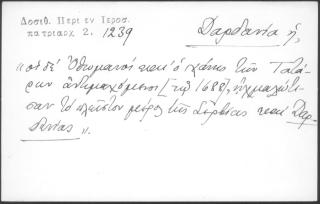 Δοσιθ. Περὶ ἐν Ἱεροσ.
πατριαρχ 2. 1239
Δαρδανία ἡ,
"οἱ δὲ Ὀθωμανοὶ καὶ ὁ χάνης τῶν Τατά-
ρων ἀντιμαχόμενοι [τῷ 1688], ᾐχμαλώτι-
σαν τὸ πλεῖστον μέρος τῆς Σερβίας καὶ Δαρ-
δανίας".